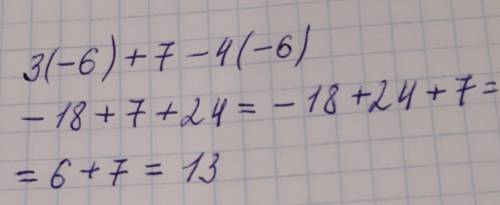 3(-6)+7-4(-6)
-18+7+24=-18+24+7=
=6+7=13